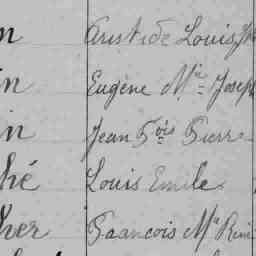 n Aristide Louis
in Eugène Mie Joseph
in Jean Fois Pierre
hé Louis Emile
her Francois Mie René